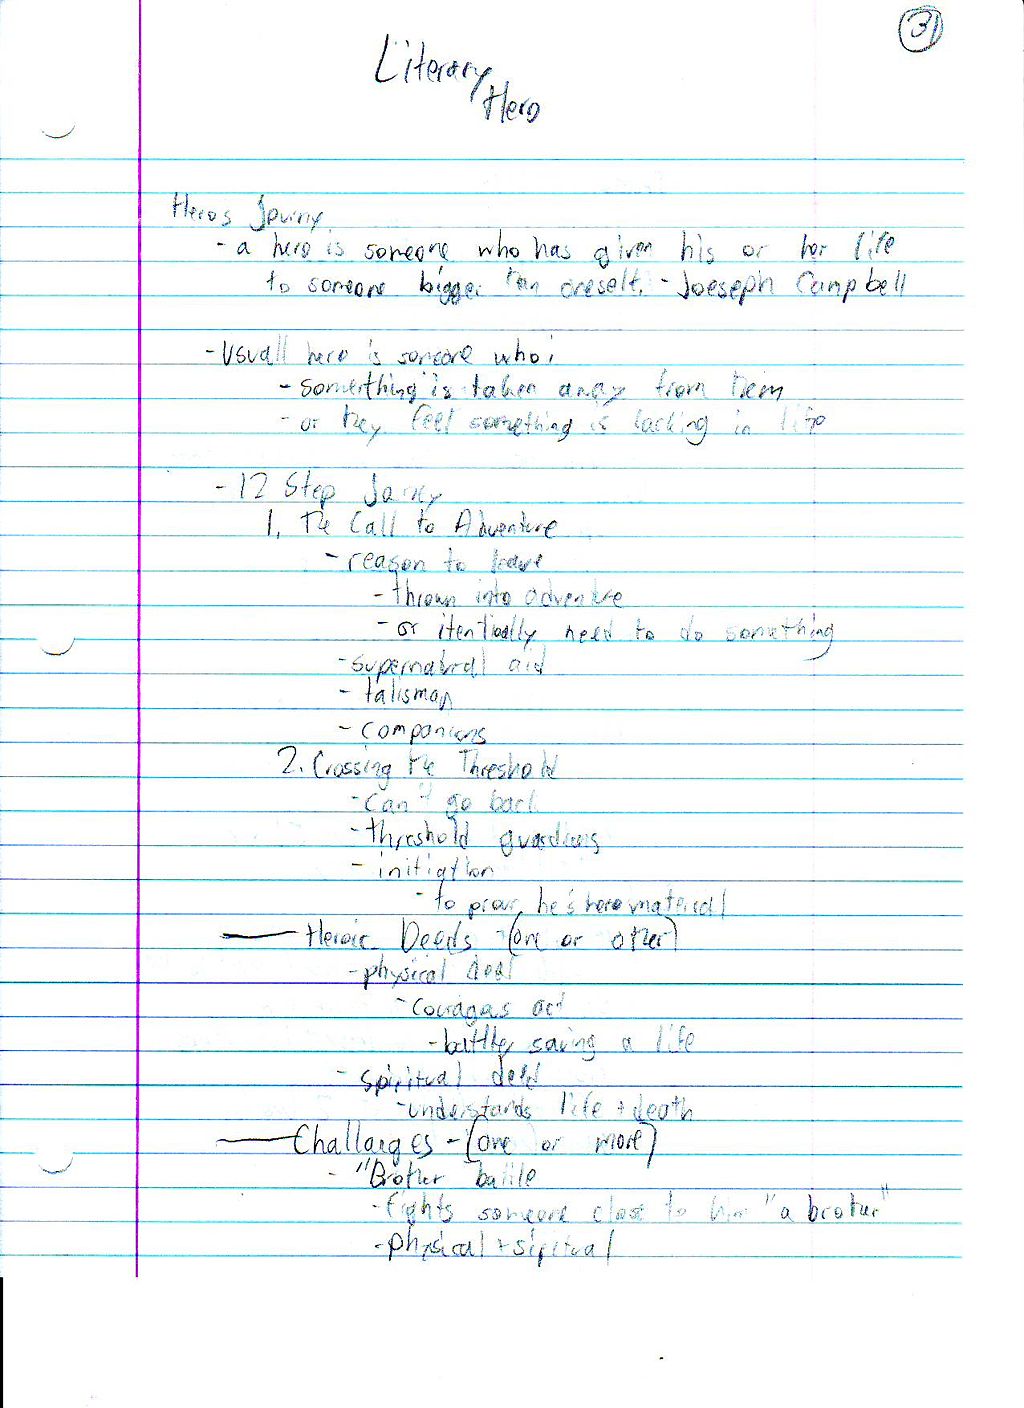 31
Literary
Hero
Heros Journy
- a hero is someone who has given his or her life
to someone bigger than oneself. - Joeseph Campbell
- Usuall hero is someone who:
- somerthing is taken away from them
- or they feel something is lacking in life
- 12 Step Jorney
1. The Call to Adventure
- reason to leave
- thrown into adventure
- or itentionally need to do something
- supernatural aid
- talisman
- companions
2. Crossing the Threshold
- can't go back
- threshold guardians
- initiation
- to prove he's hero material
Heroic Deeds (one or other)
- physical deed
- couragas act
- battle, saving a life
- spiritual deed
- understands life + death
Challanges - (one or more)
- "Brother battle
- fights someone close to him "a brother"
- physical + sipritual